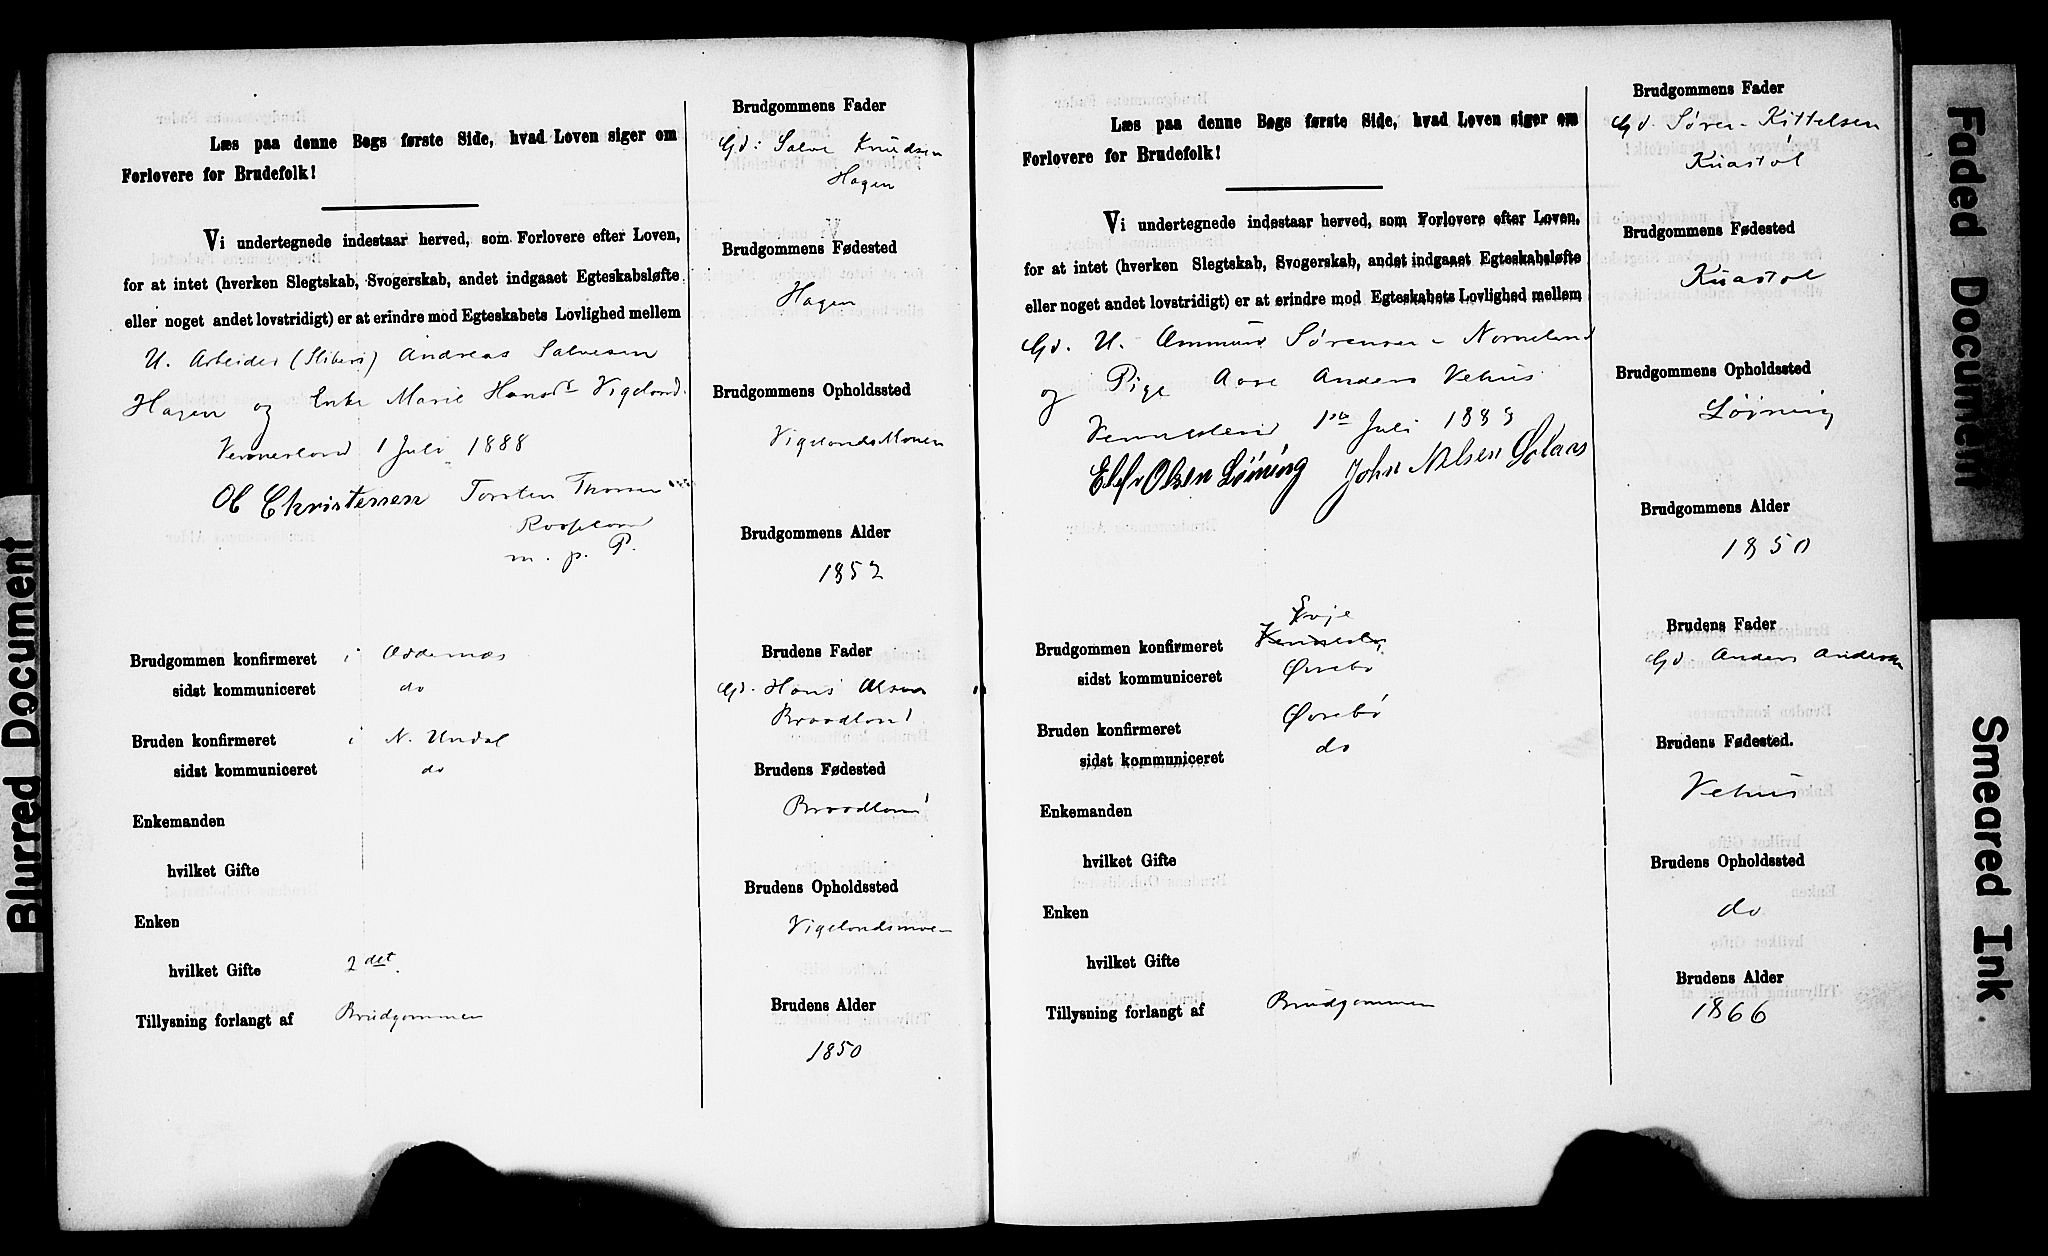 Læs paa denne Bogs første Side, hvad Loven siger om
Forlovere for Brudefolk!
Vi undertegnede indestaar herved, som Forlovere efter Loven,
for at intet (hverken Slegtskab, Svogerskab, andet indgaaet Egteskabsløfte
eller noget andet lovstridigt) er at erindre mod Egteskabets Lovlighed mellem
U. Arbeider (Sliberi) Andreas Salvesen
Hagen og Enke Marie Hansdt Vigeland
Vennesland 1 Juli 1888
Ol Christensen Torsten
m. p. P.
Brudgommen konfirmeret i Oddernæs
sidst kommuniceret do
Bruden konfirmeret i N. Undal
sidst kommuniceret do
Enkemanden
hvilket Gifte
Enken
hvilket Gifte 2det.
Tillysning forlangt af Brudgommen
Brudgommens Fader
Gd: Salve Knudsen
Hagen
Brudgommens Fødested
Hagen
Brudgommens Opholdssted
VigelandsMoen
Brudgommens Alder
1852
Brudens Fader
Gd. Hans Olsen
Braadland
Brudens Fødested
Braadland
Brudens Opholdssted
Vigelandsmoen
Brudens Alder
1850
Læs paa denne Bogs første Side, hvad Loven siger om
Forlovere for Brudefolk!
Vi undertegnede indestaar herved, som Forlovere efter Loven,
for at intet (hverken Slegtskab, Svogerskab, andet indgaaet Egteskabsløfte
eller noget andet lovstridigt) er at erindre mod Egteskabets Lovlighed mellem
Gd. U. Ommund Sørensen Nomeland
og Pige Aase Anders Vehus
1ste Juli 1888
Ellef Olsen Løining John Nilsen
Evje
Brudgommen konfirmeret
sidst kommuniceret Øvrebø
Bruden konfirmeret Øvrebø
sidst kommuniceret do
Enkemanden
hvilket Gifte
Enken
hvilket Gifte
Tillysning forlangt af Brudgommen
Brudgommens Fader
Gd. Søren Kittelsen
Kuastøl
Brudgommens Fødested
Kuastøl
Brudgommens Opholdssted
Løining
Brudgommens Alder
1850
Brudens Fader
Gd Anders Andersen
Brudens Fødested.
Vehus
Brudens Opholdssted
do
Brudens Alder
1866
Blurred Document
Faded Document
Smeared Ink